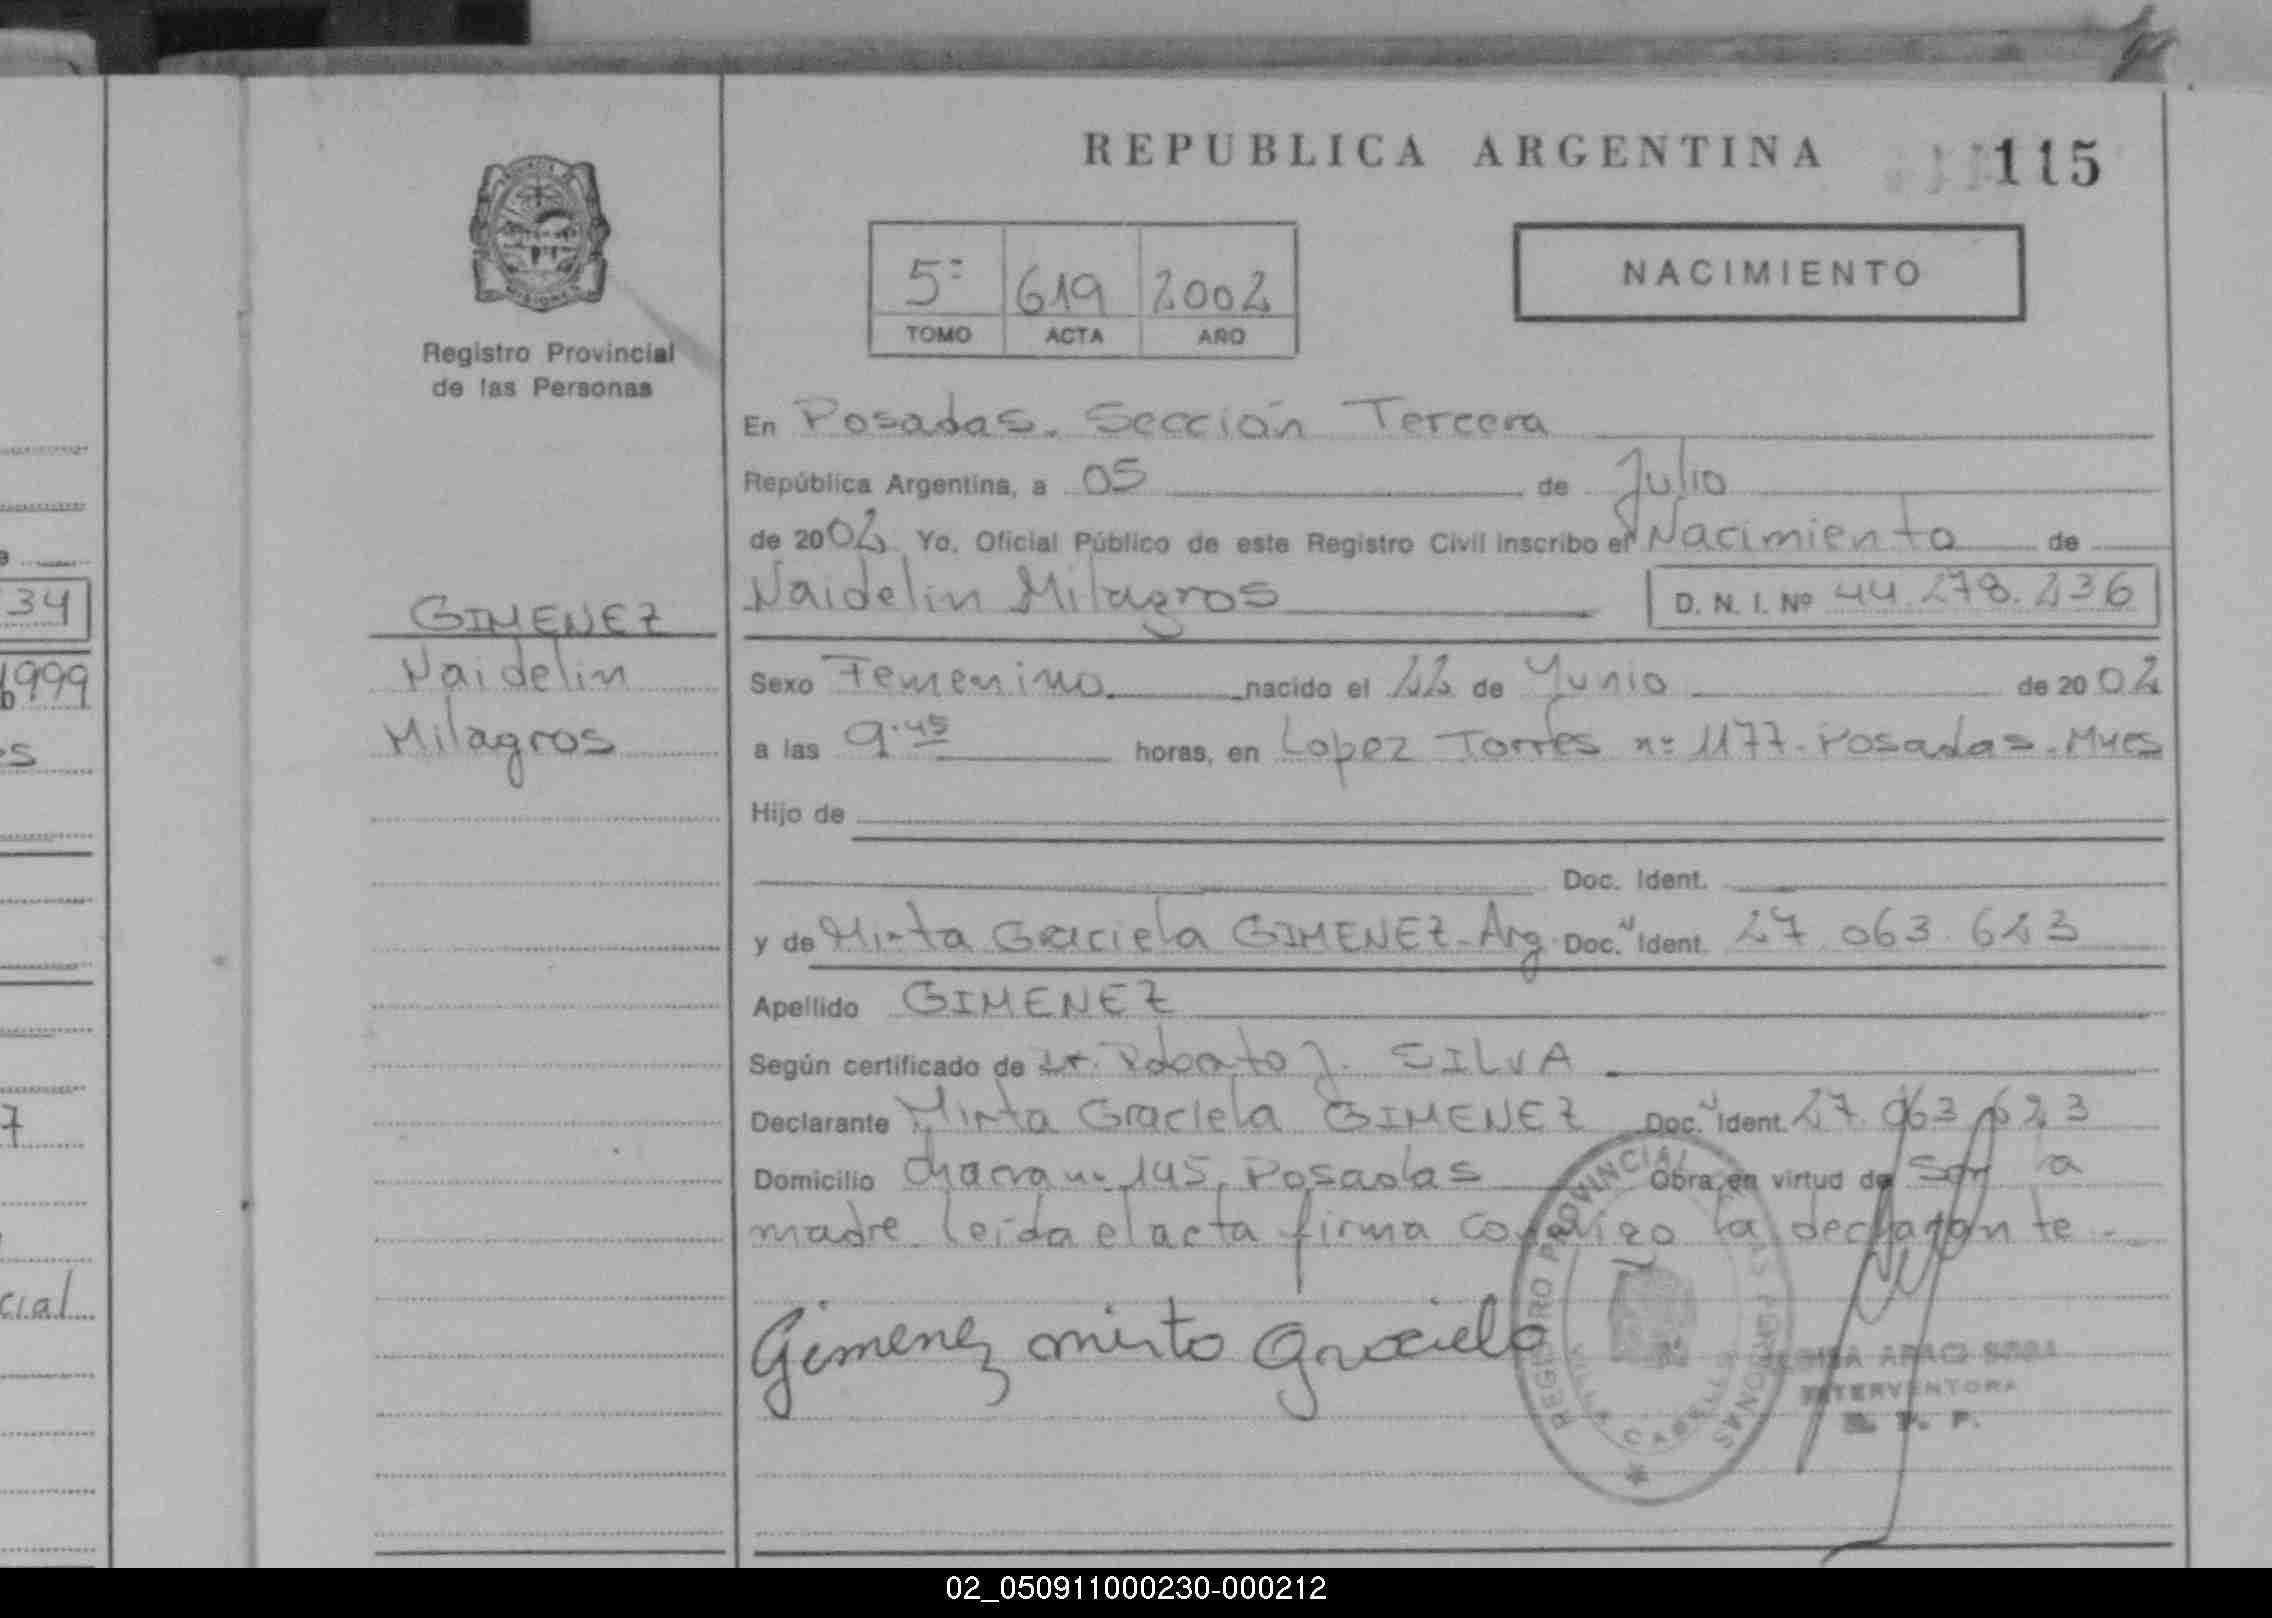 REPUBLICA ARGENTINA
115
5º 619 2002
TOMO ACTA AÑO
NACIMIENTO
MISIONES
Registro Provincial
de las Personas
En Posadas. Sección Tercera
República Argentina, a 05 de Julio
de 2002 Yo, Oficial Público de este Registro Civil inscribo el Nacimiento de
Naidelin Milagros D. N. I. Nº 44.278.236
GIMENEZ
Naidelin
Milagros
Sexo Femenino nacido el 22 de Junio de 2002
a las 9.45 horas, en Lopez Torres nº 1177. Posadas. Mnes
Hijo de
Doc. Ident.
y de Mirta Graciela GIMENEZ. Arg. Doc. Ident. 27.063.623
Apellido GIMENEZ
Según certificado de Dr. Roberto J. SILVA
Declarante Mirta Graciela GIMENEZ Doc. Ident. 27.063.623
Domicilio Chacra nº 145. Posadas Obra en virtud de Ser la
madre. leída el acta firma conmigo la declarante.
Gimenez mirta Graciela
REGISTRO PROVINCIAL DE LAS PERSONAS
VILLA CABELLO
INTERVENTORA
R. P. P.
34
1999
es
7
cial
02_050911000230-000212